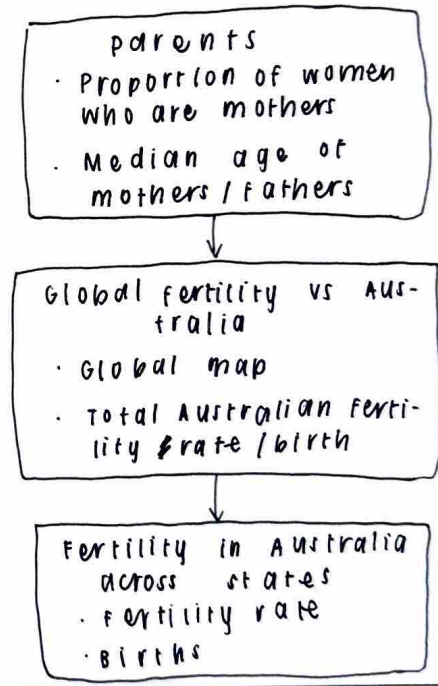 parents
· Proportion of women
who are mothers
· Median age of
mothers/fathers
Global fertility vs Aus-
tralia
· Global map
· Total Australian ferti-
lity rate/birth
Fertility in Australia
across states
· Fertility rate
· Births